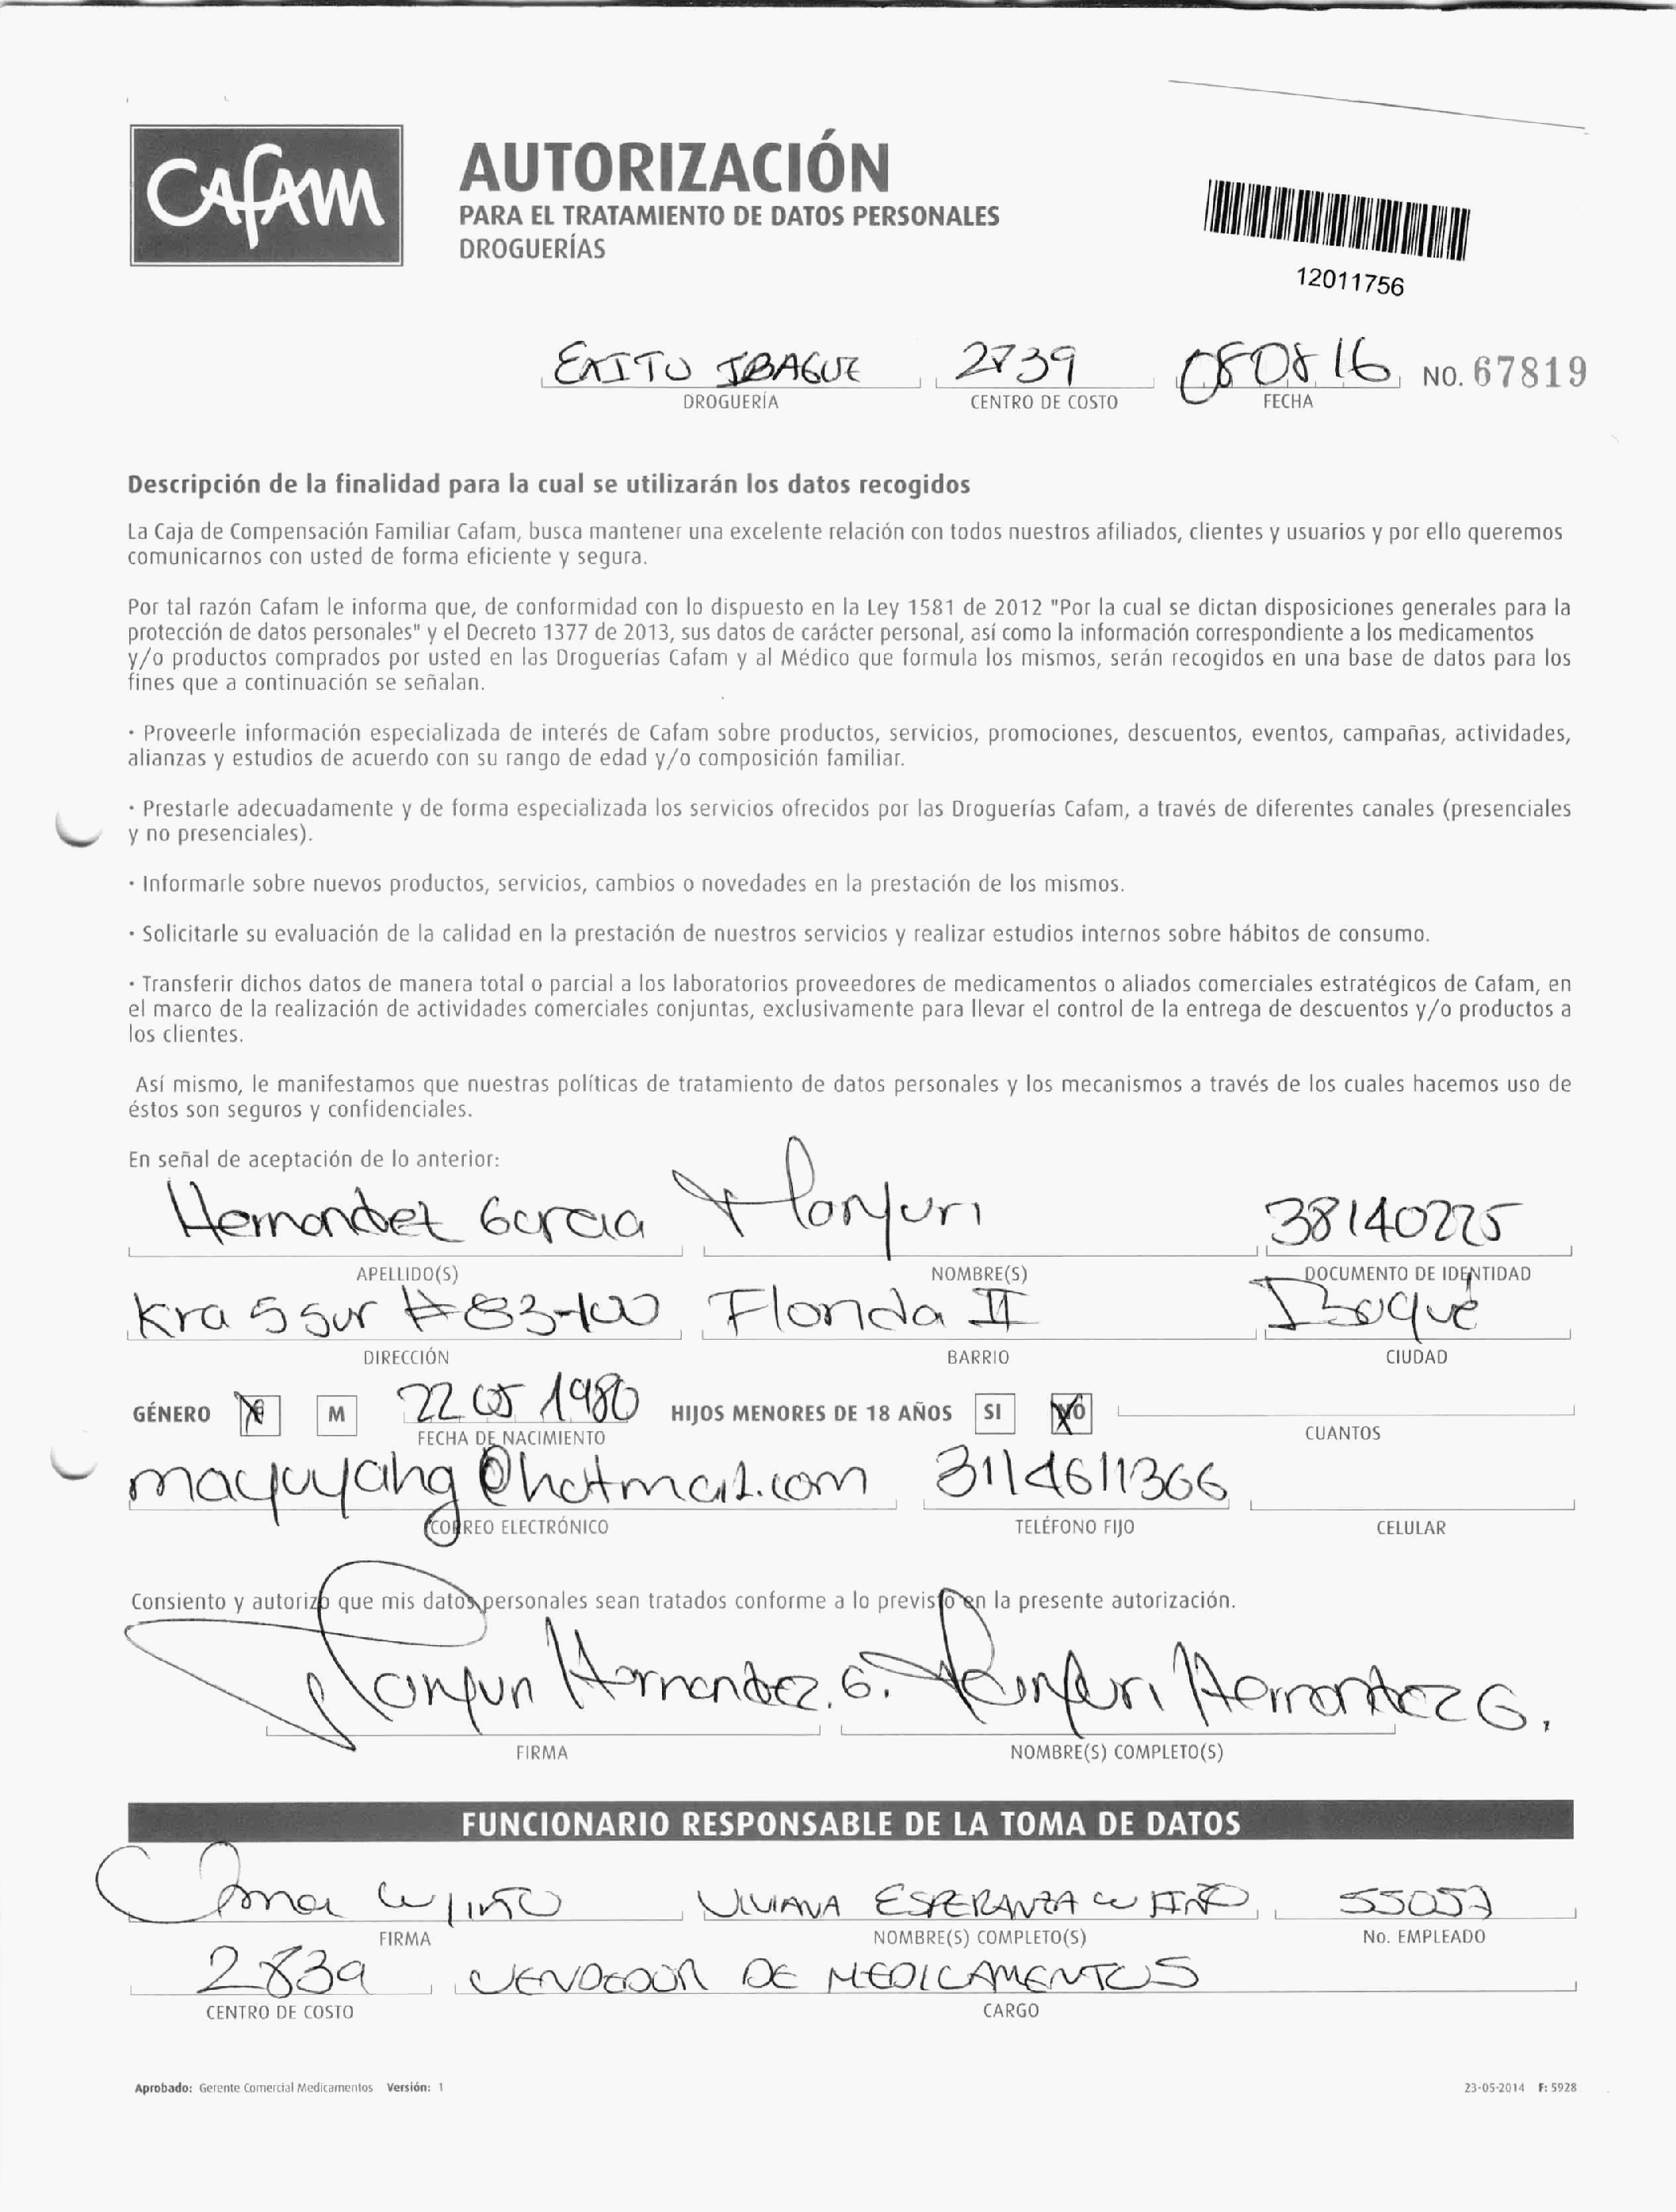 CAFAM
AUTORIZACIÓN
PARA EL TRATAMIENTO DE DATOS PERSONALES
DROGUERÍAS
12011756
EXITO IBAGUE 2739 080816 NO. 67819
DROGUERÍA CENTRO DE COSTO FECHA
Descripción de la finalidad para la cual se utilizarán los datos recogidos
La Caja de Compensación Familiar Cafam, busca mantener una excelente relación con todos nuestros afiliados, clientes y usuarios y por ello queremos
comunicarnos con usted de forma eficiente y segura.
Por tal razón Cafam le informa que, de conformidad con lo dispuesto en la Ley 1581 de 2012 "Por la cual se dictan disposiciones generales para la
protección de datos personales" y el Decreto 1377 de 2013, sus datos de carácter personal, así como la información correspondiente a los medicamentos
y/o productos comprados por usted en las Droguerías Cafam y al Médico que formula los mismos, serán recogidos en una base de datos para los
fines que a continuación se señalan.
· Proveerle información especializada de interés de Cafam sobre productos, servicios, promociones, descuentos, eventos, campañas, actividades,
alianzas y estudios de acuerdo con su rango de edad y/o composición familiar.
· Prestarle adecuadamente y de forma especializada los servicios ofrecidos por las Droguerías Cafam, a través de diferentes canales (presenciales
y no presenciales).
· Informarle sobre nuevos productos, servicios, cambios o novedades en la prestación de los mismos.
· Solicitarle su evaluación de la calidad en la prestación de nuestros servicios y realizar estudios internos sobre hábitos de consumo.
· Transferir dichos datos de manera total o parcial a los laboratorios proveedores de medicamentos o aliados comerciales estratégicos de Cafam, en
el marco de la realización de actividades comerciales conjuntas, exclusivamente para llevar el control de la entrega de descuentos y/o productos a
los clientes.
Así mismo, le manifestamos que nuestras políticas de tratamiento de datos personales y los mecanismos a través de los cuales hacemos uso de
éstos son seguros y confidenciales.
En señal de aceptación de lo anterior:
Hernandez Garcia Manyuri 38140225
APELLIDO(S) NOMBRE(S) DOCUMENTO DE IDENTIDAD
Kra 5 sur #83-100 Florida II Ibagué
DIRECCIÓN BARRIO CIUDAD
GÉNERO F M 22 05 1980 HIJOS MENORES DE 18 AÑOS SI NO
FECHA DE NACIMIENTO CUANTOS
mayuyahg@hotmail.com 3114611366
CORREO ELECTRÓNICO TELÉFONO FIJO CELULAR
Consiento y autorizo que mis datos personales sean tratados conforme a lo previsto en la presente autorización.
Manyuri Hernandez.G. Manyuri Hernandez G.
FIRMA NOMBRE(S) COMPLETO(S)
FUNCIONARIO RESPONSABLE DE LA TOMA DE DATOS
VIVIANA ESPERANZA 55057
FIRMA NOMBRE(S) COMPLETO(S) No. EMPLEADO
2839 VENDEDOR DE MEDICAMENTOS
CENTRO DE COSTO CARGO
Aprobado: Gerente Comercial Medicamentos Versión: 1 23-05-2014 F: 5928